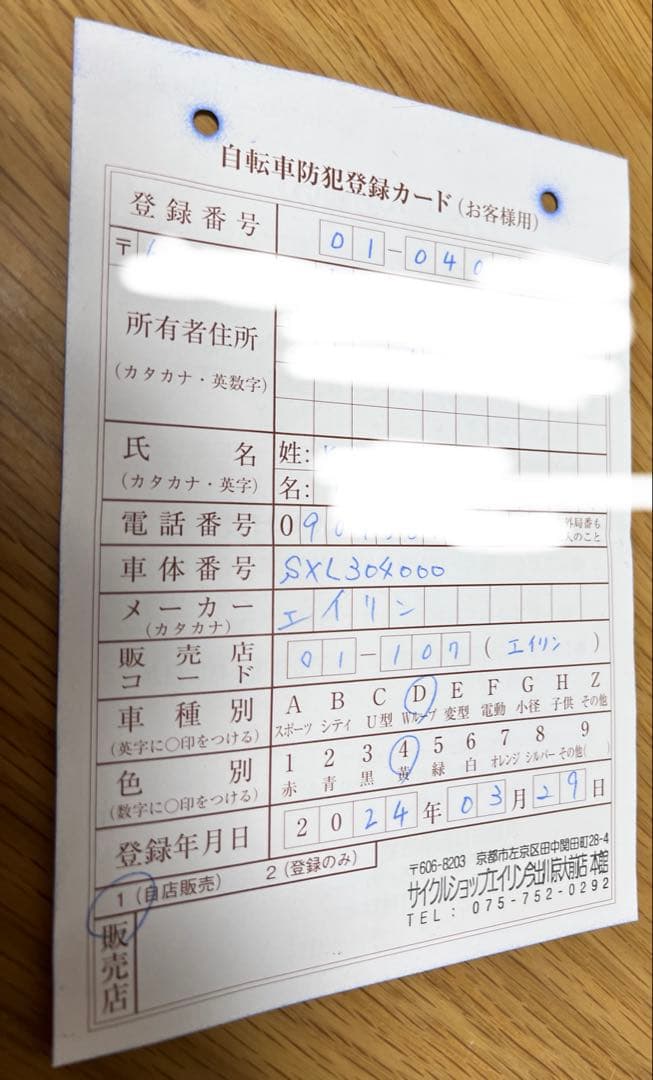 自転車防犯登録カード(お客様用)
登録番号 01-040
〒
所有者住所
(カタカナ・英数字)
氏名 姓:
(カタカナ・英字) 名:
電話番号 090
外局番も
人のこと
車体番号 SXL304000
メーカー エイリン
(カタカナ)
販売店コード 01-107 (エイリン)
車種別 A B C D E F G H Z
(英字に○印をつける) スポーツ シティ U型 Wループ 変型 電動 小径 子供 その他
色別 1 2 3 4 5 6 7 8 9
(数字に○印をつける) 赤 青 黒 黄 緑 白 オレンジ シルバー その他( )
登録年月日 2024年03月29日
1(自店販売) 2(登録のみ)
販売店
〒606-8203 京都市左京区田中関田町28-4
サイクルショップエイリン今出川京大前店 本館
TEL: 075-752-0292